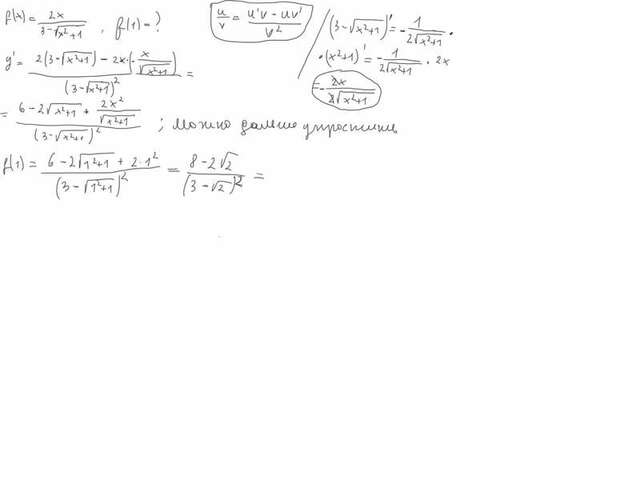 f(x) = \frac{2x}{3-\sqrt{x^2+1}}, f(1) = ?
\frac{u}{v} = \frac{u'v - uv'}{v^2}
(3-\sqrt{x^2+1})' = -\frac{1}{2\sqrt{x^2+1}} \cdot
\cdot (x^2+1)' = -\frac{1}{2\sqrt{x^2+1}} \cdot 2x
= -\frac{2x}{2\sqrt{x^2+1}}
y' = \frac{2(3-\sqrt{x^2+1}) - 2x \cdot (-\frac{x}{\sqrt{x^2+1}})}{(3-\sqrt{x^2+1})^2} =
= \frac{6-2\sqrt{x^2+1} + \frac{2x^2}{\sqrt{x^2+1}}}{(3-\sqrt{x^2+1})^2} ; можно дальше упростить
f(1) = \frac{6-2\sqrt{1^2+1} + 2 \cdot 1^2}{(3-\sqrt{1^2+1})^2} = \frac{8-2\sqrt{2}}{(3-\sqrt{2})^2} =